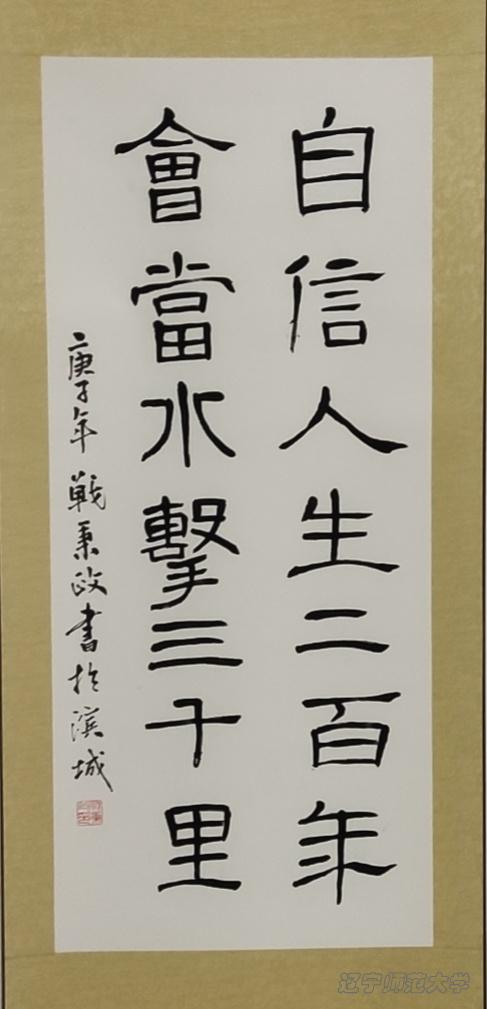 自信人生二百年
會當水擊三千里
庚子年戰秉政書於濱城
辽宁师范大学